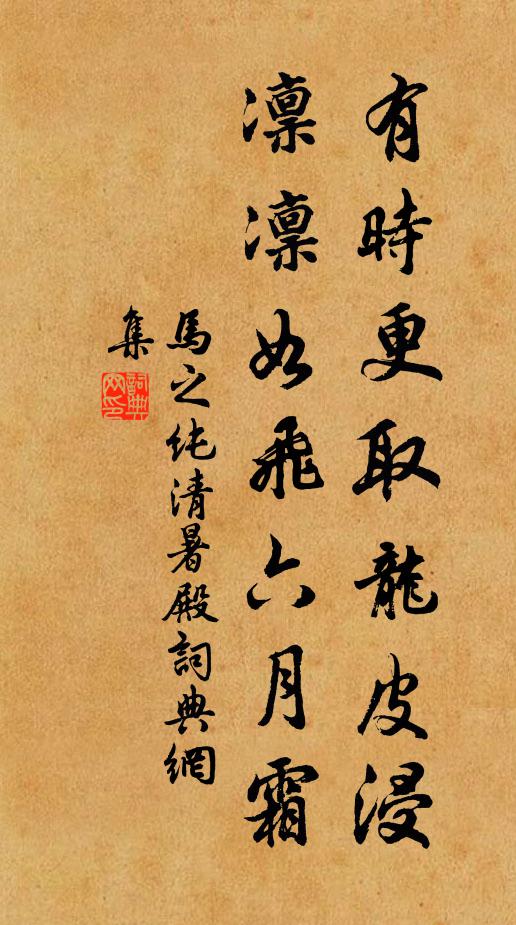 有時更取龍皮浸
凛凛如飛六月霜
馬之純清暑殿詞典網
集
詞典
網印